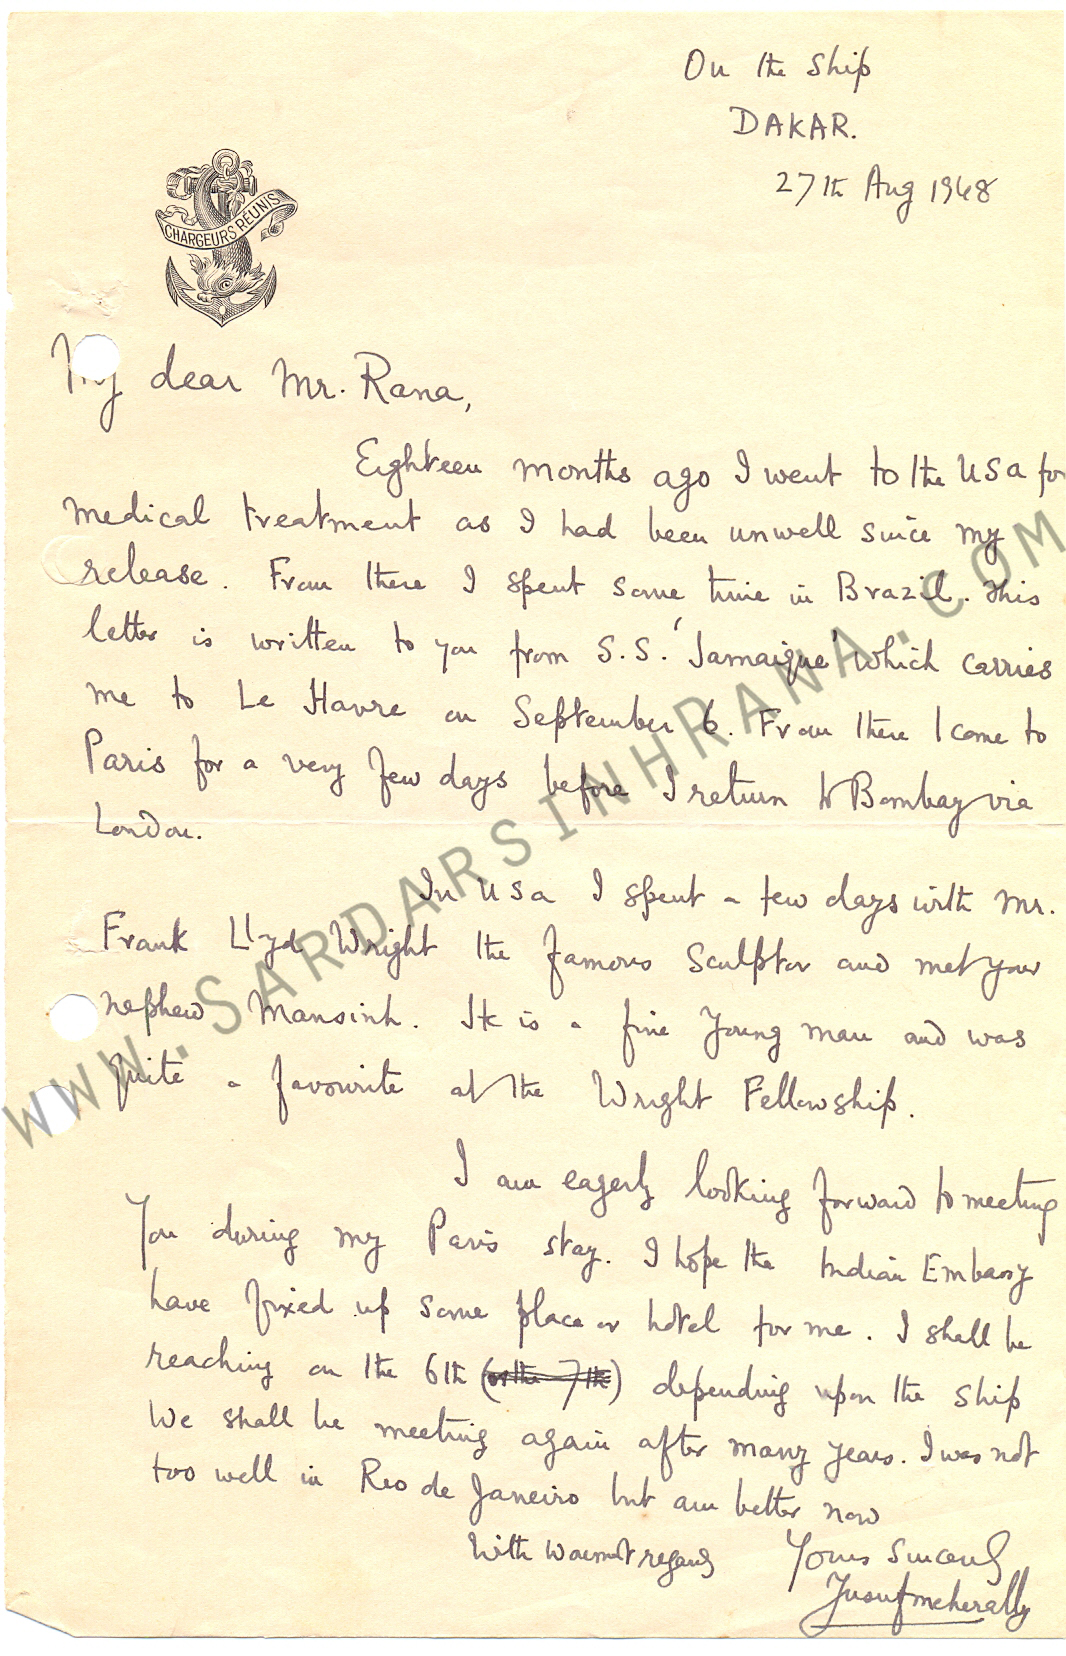 On the Ship
DAKAR.
27th Aug 1948
CHARGEURS RÉUNIS
My dear Mr. Rana,
Eighteen months ago I went to the USA for
medical treatment as I had been unwell since my
release. From there I spent some time in Brazil. This
letter is written to you from S.S. 'Jamaique' which carries
me to Le Havre on September 6. From there I come to
Paris for a very few days before I return to Bombay via
London.
In USA I spent a few days with Mr.
Frank Llyd Wright the famous Sculptor and met your
nephew Mansinh. He is a fine young man and was
quite a favourite at the Wright Fellowship.
I am eagerly looking forward to meeting
you during my Paris stay. I hope the Indian Embassy
have fixed up some place or hotel for me. I shall be
reaching on the 6th (or the 7th) depending upon the ship
We shall be meeting again after many years. I was not
too well in Rio de Janeiro but am better now
With warmest regards
Yours Sincerely
Yusuf Meherally
WWW.SARDARSINHRANA.COM